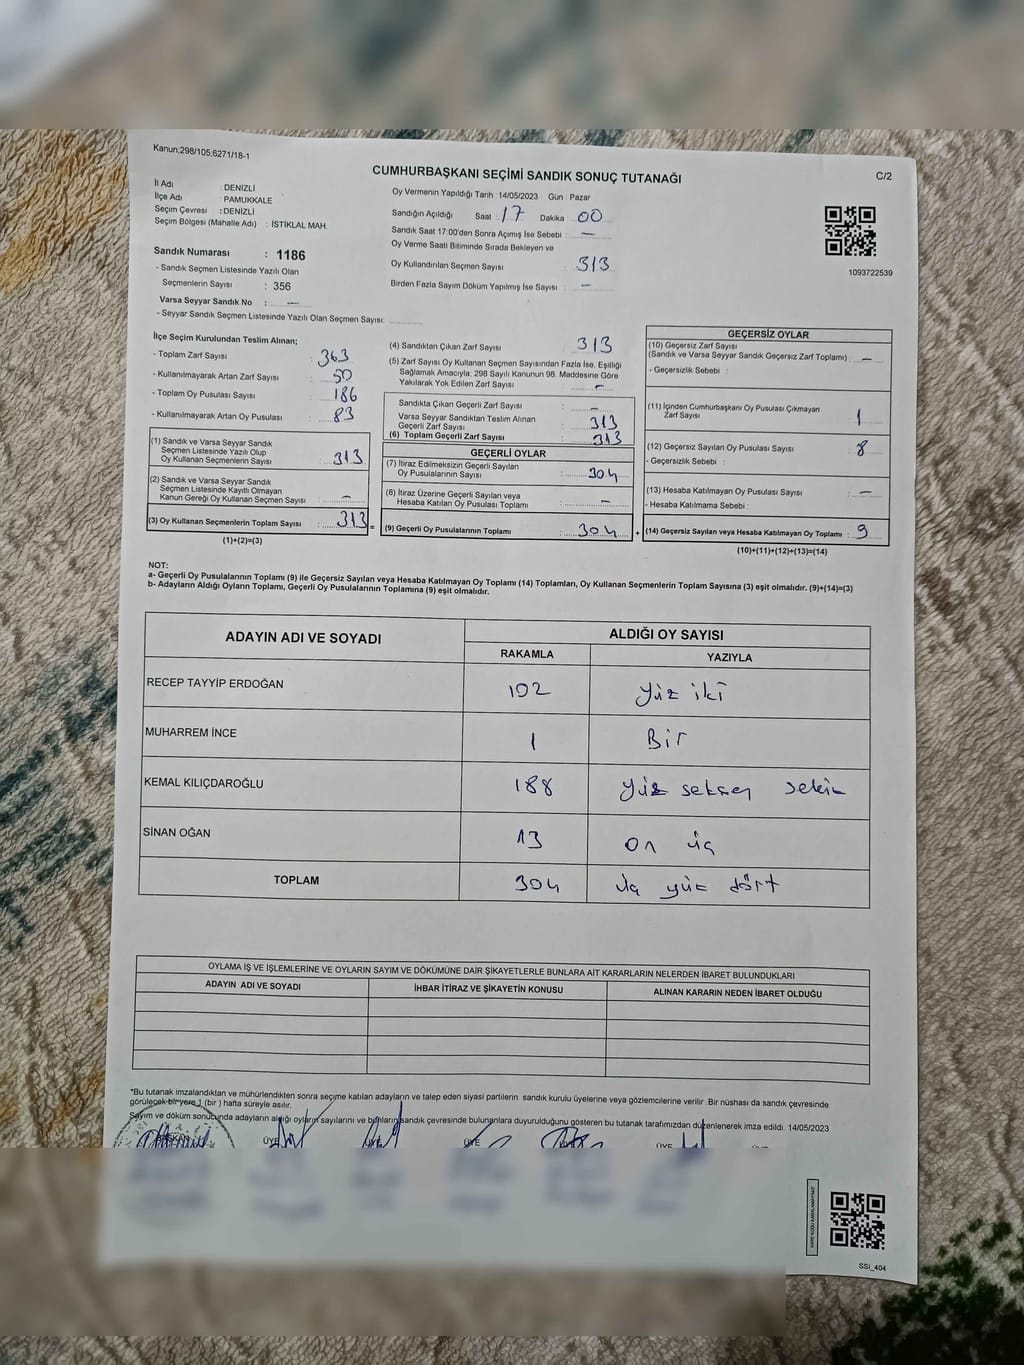 Kanun;298/105,6271/18-1
CUMHURBAŞKANI SEÇİMİ SANDIK SONUÇ TUTANAĞI
C/2
İl Adı : DENİZLİ
İlçe Adı : PAMUKKALE
Seçim Çevresi : DENİZLİ
Seçim Bölgesi (Mahalle Adı) : İSTİKLAL MAH.
Sandık Numarası : 1186
- Sandık Seçmen Listesinde Yazılı Olan
Seçmenlerin Sayısı : 356
Varsa Seyyar Sandık No : —
- Seyyar Sandık Seçmen Listesinde Yazılı Olan Seçmen Sayısı:
Oy Vermenin Yapıldığı Tarih :14/05/2023 Gün : Pazar
Sandığın Açıldığı Saat : 17 Dakika : 00
Sandık Saat 17:00'den Sonra Açımış İse Sebebi : —
Oy Verme Saati Bitiminde Sırada Bekleyen ve
Oy Kullandırılan Seçmen Sayısı : 313
Birden Fazla Sayım Döküm Yapılmış İse Sayısı : —
1093722539
İlçe Seçim Kurulundan Teslim Alınan;
- Toplam Zarf Sayısı : 363
- Kullanılmayarak Artan Zarf Sayısı : 50
- Toplam Oy Pusulası Sayısı : 186
- Kullanılmayarak Artan Oy Pusulası : 83
(1) Sandık ve Varsa Seyyar Sandık
Seçmen Listesinde Yazılı Olup
Oy Kullanan Seçmenlerin Sayısı : 313
(2) Sandık ve Varsa Seyyar Sandık
Seçmen Listesinde Kayıtlı Olmayan
Kanun Gereği Oy Kullanan Seçmen Sayısı : —
(3) Oy Kullanan Seçmenlerin Toplam Sayısı : 313 =
(1)+(2)=(3)
(4) Sandıktan Çıkan Zarf Sayısı : 313
(5) Zarf Sayısı Oy Kullanan Seçmen Sayısından Fazla İse, Eşitliği
Sağlamak Amacıyla; 298 Sayılı Kanunun 98. Maddesine Göre
Yakılarak Yok Edilen Zarf Sayısı : —
Sandıkta Çıkan Geçerli Zarf Sayısı : —
Varsa Seyyar Sandıktan Teslim Alınan
Geçerli Zarf Sayısı : 313
(6) Toplam Geçerli Zarf Sayısı : 313
GEÇERLİ OYLAR
(7) İtiraz Edilmeksizin Geçerli Sayılan
Oy Pusulalarının Sayısı : 304
(8) İtiraz Üzerine Geçerli Sayılan veya
Hesaba Katılan Oy Pusulası Toplamı : —
(9) Geçerli Oy Pusulalarının Toplamı : 304 +
GEÇERSİZ OYLAR
(10) Geçersiz Zarf Sayısı
(Sandık ve Varsa Seyyar Sandık Geçersiz Zarf Toplamı) : —
- Geçersizlik Sebebi :
(11) İçinden Cumhurbaşkanı Oy Pusulası Çıkmayan
Zarf Sayısı : 1
(12) Geçersiz Sayılan Oy Pusulası Sayısı : 8
- Geçersizlik Sebebi :
(13) Hesaba Katılmayan Oy Pusulası Sayısı : —
- Hesaba Katılmama Sebebi :
(14) Geçersiz Sayılan veya Hesaba Katılmayan Oy Toplamı : 9
(10)+(11)+(12)+(13)=(14)
NOT:
a- Geçerli Oy Pusulalarının Toplamı (9) ile Geçersiz Sayılan veya Hesaba Katılmayan Oy Toplamı (14) Toplamları, Oy Kullanan Seçmenlerin Toplam Sayısına (3) eşit olmalıdır. (9)+(14)=(3)
b- Adayların Aldığı Oyların Toplamı, Geçerli Oy Pusulalarının Toplamına (9) eşit olmalıdır.
ADAYIN ADI VE SOYADI ALDIĞI OY SAYISI
RAKAMLA YAZIYLA
RECEP TAYYİP ERDOĞAN 102 yüz iki
MUHARREM İNCE 1 Bir
KEMAL KILIÇDAROĞLU 188 yüz seksen sekiz
SİNAN OĞAN 13 on üç
TOPLAM 304 üç yüz dört
OYLAMA İŞ VE İŞLEMLERİNE VE OYLARIN SAYIM VE DÖKÜMÜNE DAİR ŞİKAYETLERLE BUNLARA AİT KARARLARIN NELERDEN İBARET BULUNDUKLARI
ADAYIN ADI VE SOYADI İHBAR İTİRAZ VE ŞİKAYETİN KONUSU ALINAN KARARIN NEDEN İBARET OLDUĞU
*Bu tutanak imzalandıktan ve mühürlendikten sonra seçime katılan adayların ve talep eden siyasi partilerin sandık kurulu üyelerine veya gözlemcilerine verilir .Bir nüshası da sandık çevresinde
görülecek bir yere 1 (bir ) hafta süreyle asılır.
Sayım ve döküm sonucunda adayların aldığı oyların sayılarını ve bunların sandık çevresinde bulunanlara duyurulduğunu gösteren bu tutanak tarafımızdan düzenlenerek imza edildi. 14/05/2023
BAŞKAN ÜYE ÜYE ÜYE ÜYE ÜYE ÜYE
SSI_404